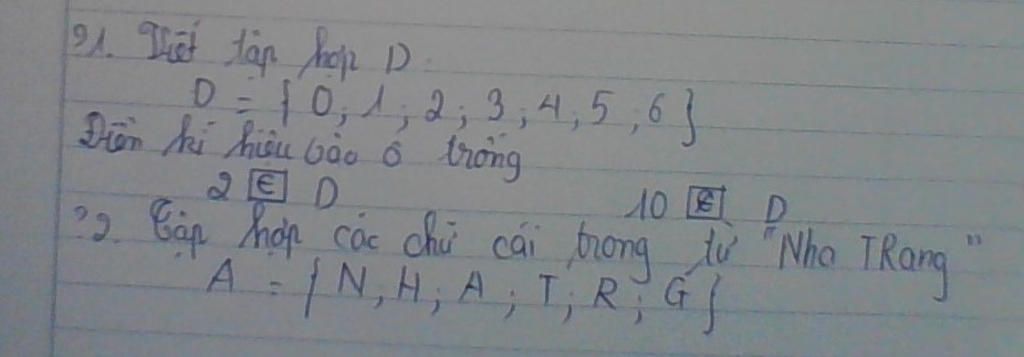 ?1. Viết tập hợp D.
D = { 0; 1; 2; 3; 4; 5; 6 }
Điền kí hiệu vào ô trống
2 ∈ D 10 ∉ D
?2. Tập hợp các chữ cái trong từ "Nha TRang"
A = { N; H; A; T; R; G }